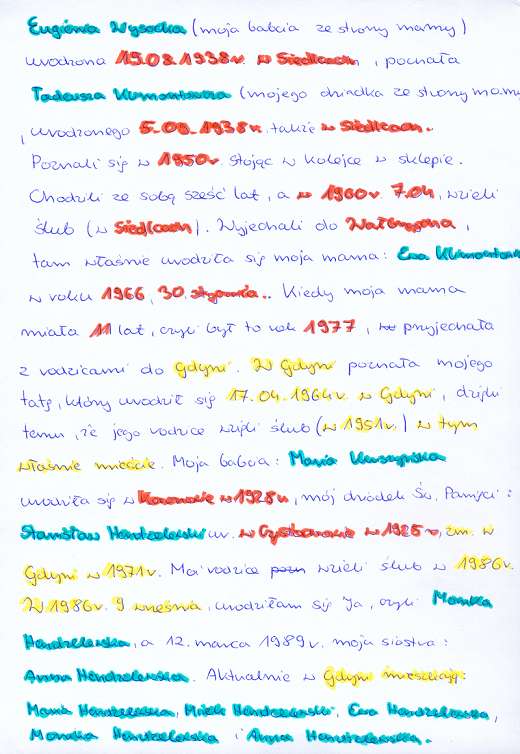 Eugienia Wysocka (moja babcia ze strony mamy)
urodzona 15.08.1938r. w Siedlcach, poznała
Tadeusza Klimontowicza (mojego dziadka ze strony mamy)
, urodzonego 5.09.1938r. także w Siedlcach.
Poznali się w 1950r. stojąc w kolejce w sklepie.
Chodzili ze sobą sześć lat, a w 1960r. 7.04, wzieli
ślub (w Siedlcach). Wyjechali do Wałbrzycha,
tam właśnie urodziła się moja mama: Ewa
w roku 1966, 30 stycznia.. Kiedy moja mama
miała 11 lat, czyli był to rok 1977, przyjechała
z rodzicami do Gdyni. W Gdyni poznała mojego
tatę, który urodził się 17.04.1964r. w Gdyni, dzięki
temu, że jego rodzice wzięli ślub (w 1951r.) w tym
właśnie mieście. Moja babcia: Maria
urodziła się w Koronowie w 1928r, mój dziadek Św. Pamięci:
Stanisław Hendzelewski ur. w w 1925r, zm. w
Gdyni w 1971r. Moi rodzice wzieli ślub w 1986r.
W 1986r. 9 września, urodziłam się ja, czyli Monika
Hendzelewska, a 12. marca 1989r. moja siostra:
Anna Hendzelewska. Aktualnie w Gdyni mieszkają:
Maria Hendzelewska, Hendzelewski, Ewa Hendzelewska,
Monika Hendzelewska i Anna Hendzelewska.